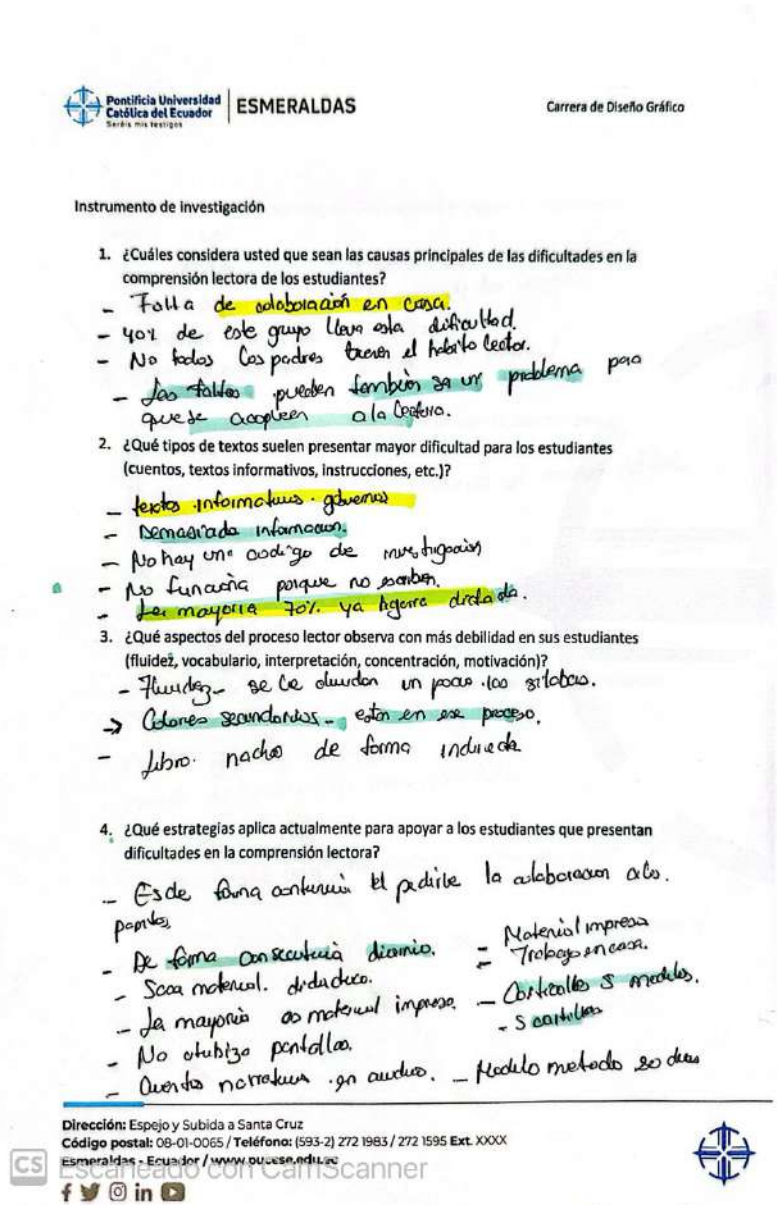 Pontificia Universidad
Católica del Ecuador
Seréis mis testigos
ESMERALDAS
Carrera de Diseño Gráfico
Instrumento de investigación
1. ¿Cuáles considera usted que sean las causas principales de las dificultades en la
comprensión lectora de los estudiantes?
- Falta de colaboración en casa.
- 40% de este grupo lleva esta dificultad.
- No todos los padres tienen el habito lector.
- Las faltas pueden también ser un problema para
que se acoplen a la lectura.
2. ¿Qué tipos de textos suelen presentar mayor dificultad para los estudiantes
(cuentos, textos informativos, instrucciones, etc.)?
- textos informativos.
- Demasiada informacion.
- No hay un codigo de investigación
- No funciona porque no escriben.
- La mayoria 70% ya dictado.
3. ¿Qué aspectos del proceso lector observa con más debilidad en sus estudiantes
(fluidez, vocabulario, interpretación, concentración, motivación)?
- Fluidez - se le olvidan un poco las silabas.
→ Colores secundarios - estan en ese proceso.
- Libro nacho de forma
4. ¿Qué estrategias aplica actualmente para apoyar a los estudiantes que presentan
dificultades en la comprensión lectora?
- Es de forma el pedirle la colaboracion a los
- De forma consecutiva diario.
- material didactico.
- La mayoria es material impreso.
- No utilizo pantallas.
- Cuentos narrativos en audios.
- Material impreso
- Trabajo en casa.
- 5 modelos.
- 5 cartillas
- Modelo metodo 20 dias
Dirección: Espejo y Subida a Santa Cruz
Código postal: 08-01-0065 / Teléfono: (593-2) 272 1983 / 272 1595 Ext. XXXX
Esmeraldas - Ecuador / www.pucese.edu.ec
CS Escaneado con CamScanner